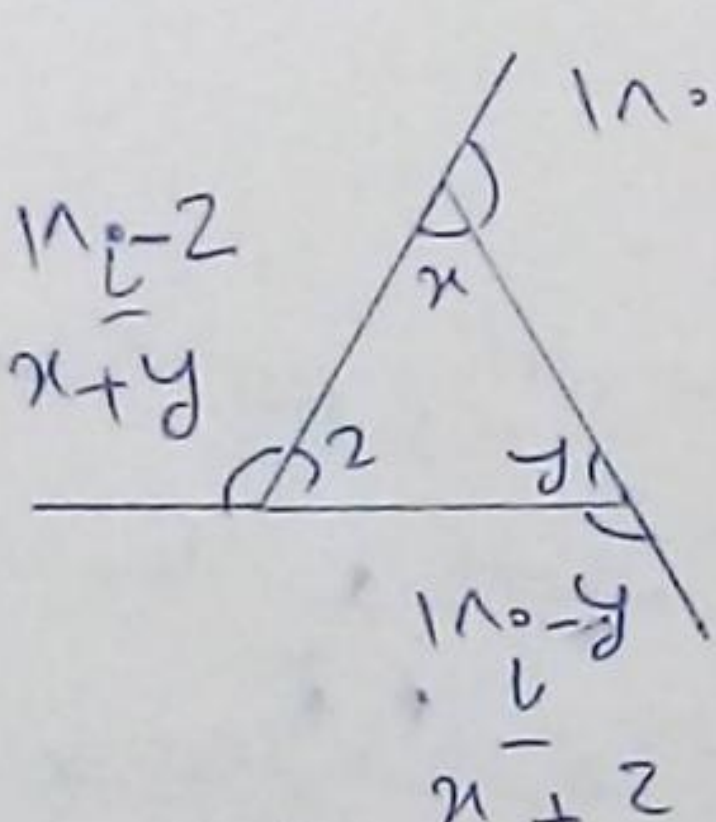 ۱۸۰
۱۸۰-z
یا
x+y
x
z
y
۱۸۰-y
یا
x + z